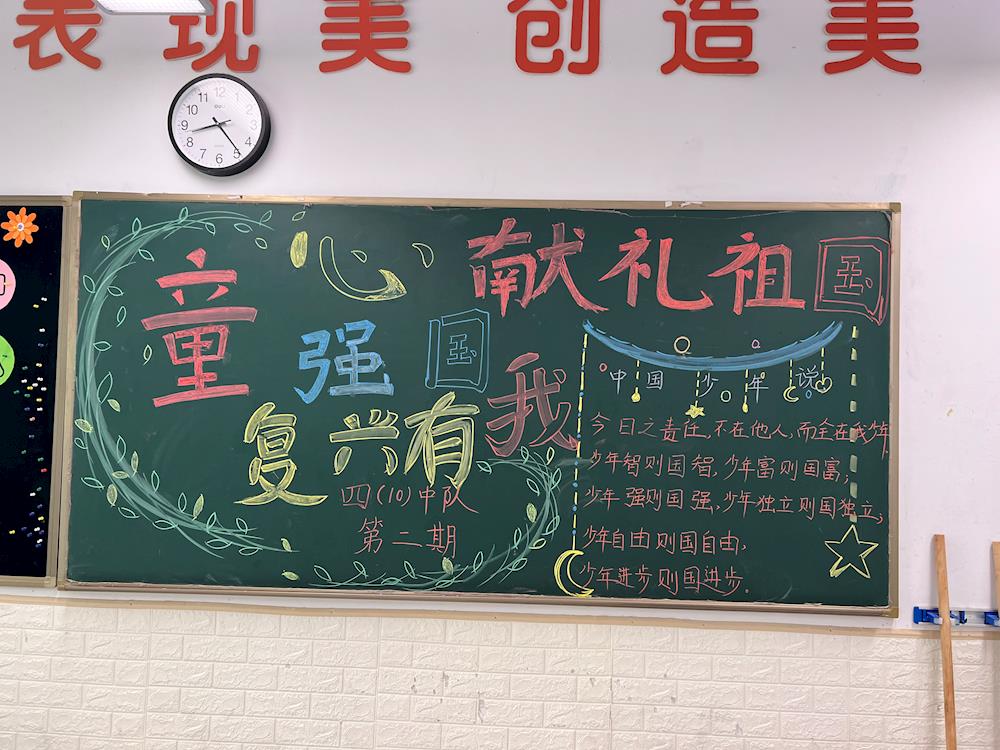 表现美 创造美
12
1
2
3
4
5
6
7
8
9
10
11
童心献礼祖国
强国
复兴有我
四(10)中队
第二期
中国少年说
今日之责任,不在他人,而全在我少年
少年智则国智,少年富则国富;
少年强则国强,少年独立则国独立;
少年自由则国自由,
少年进步则国进步.